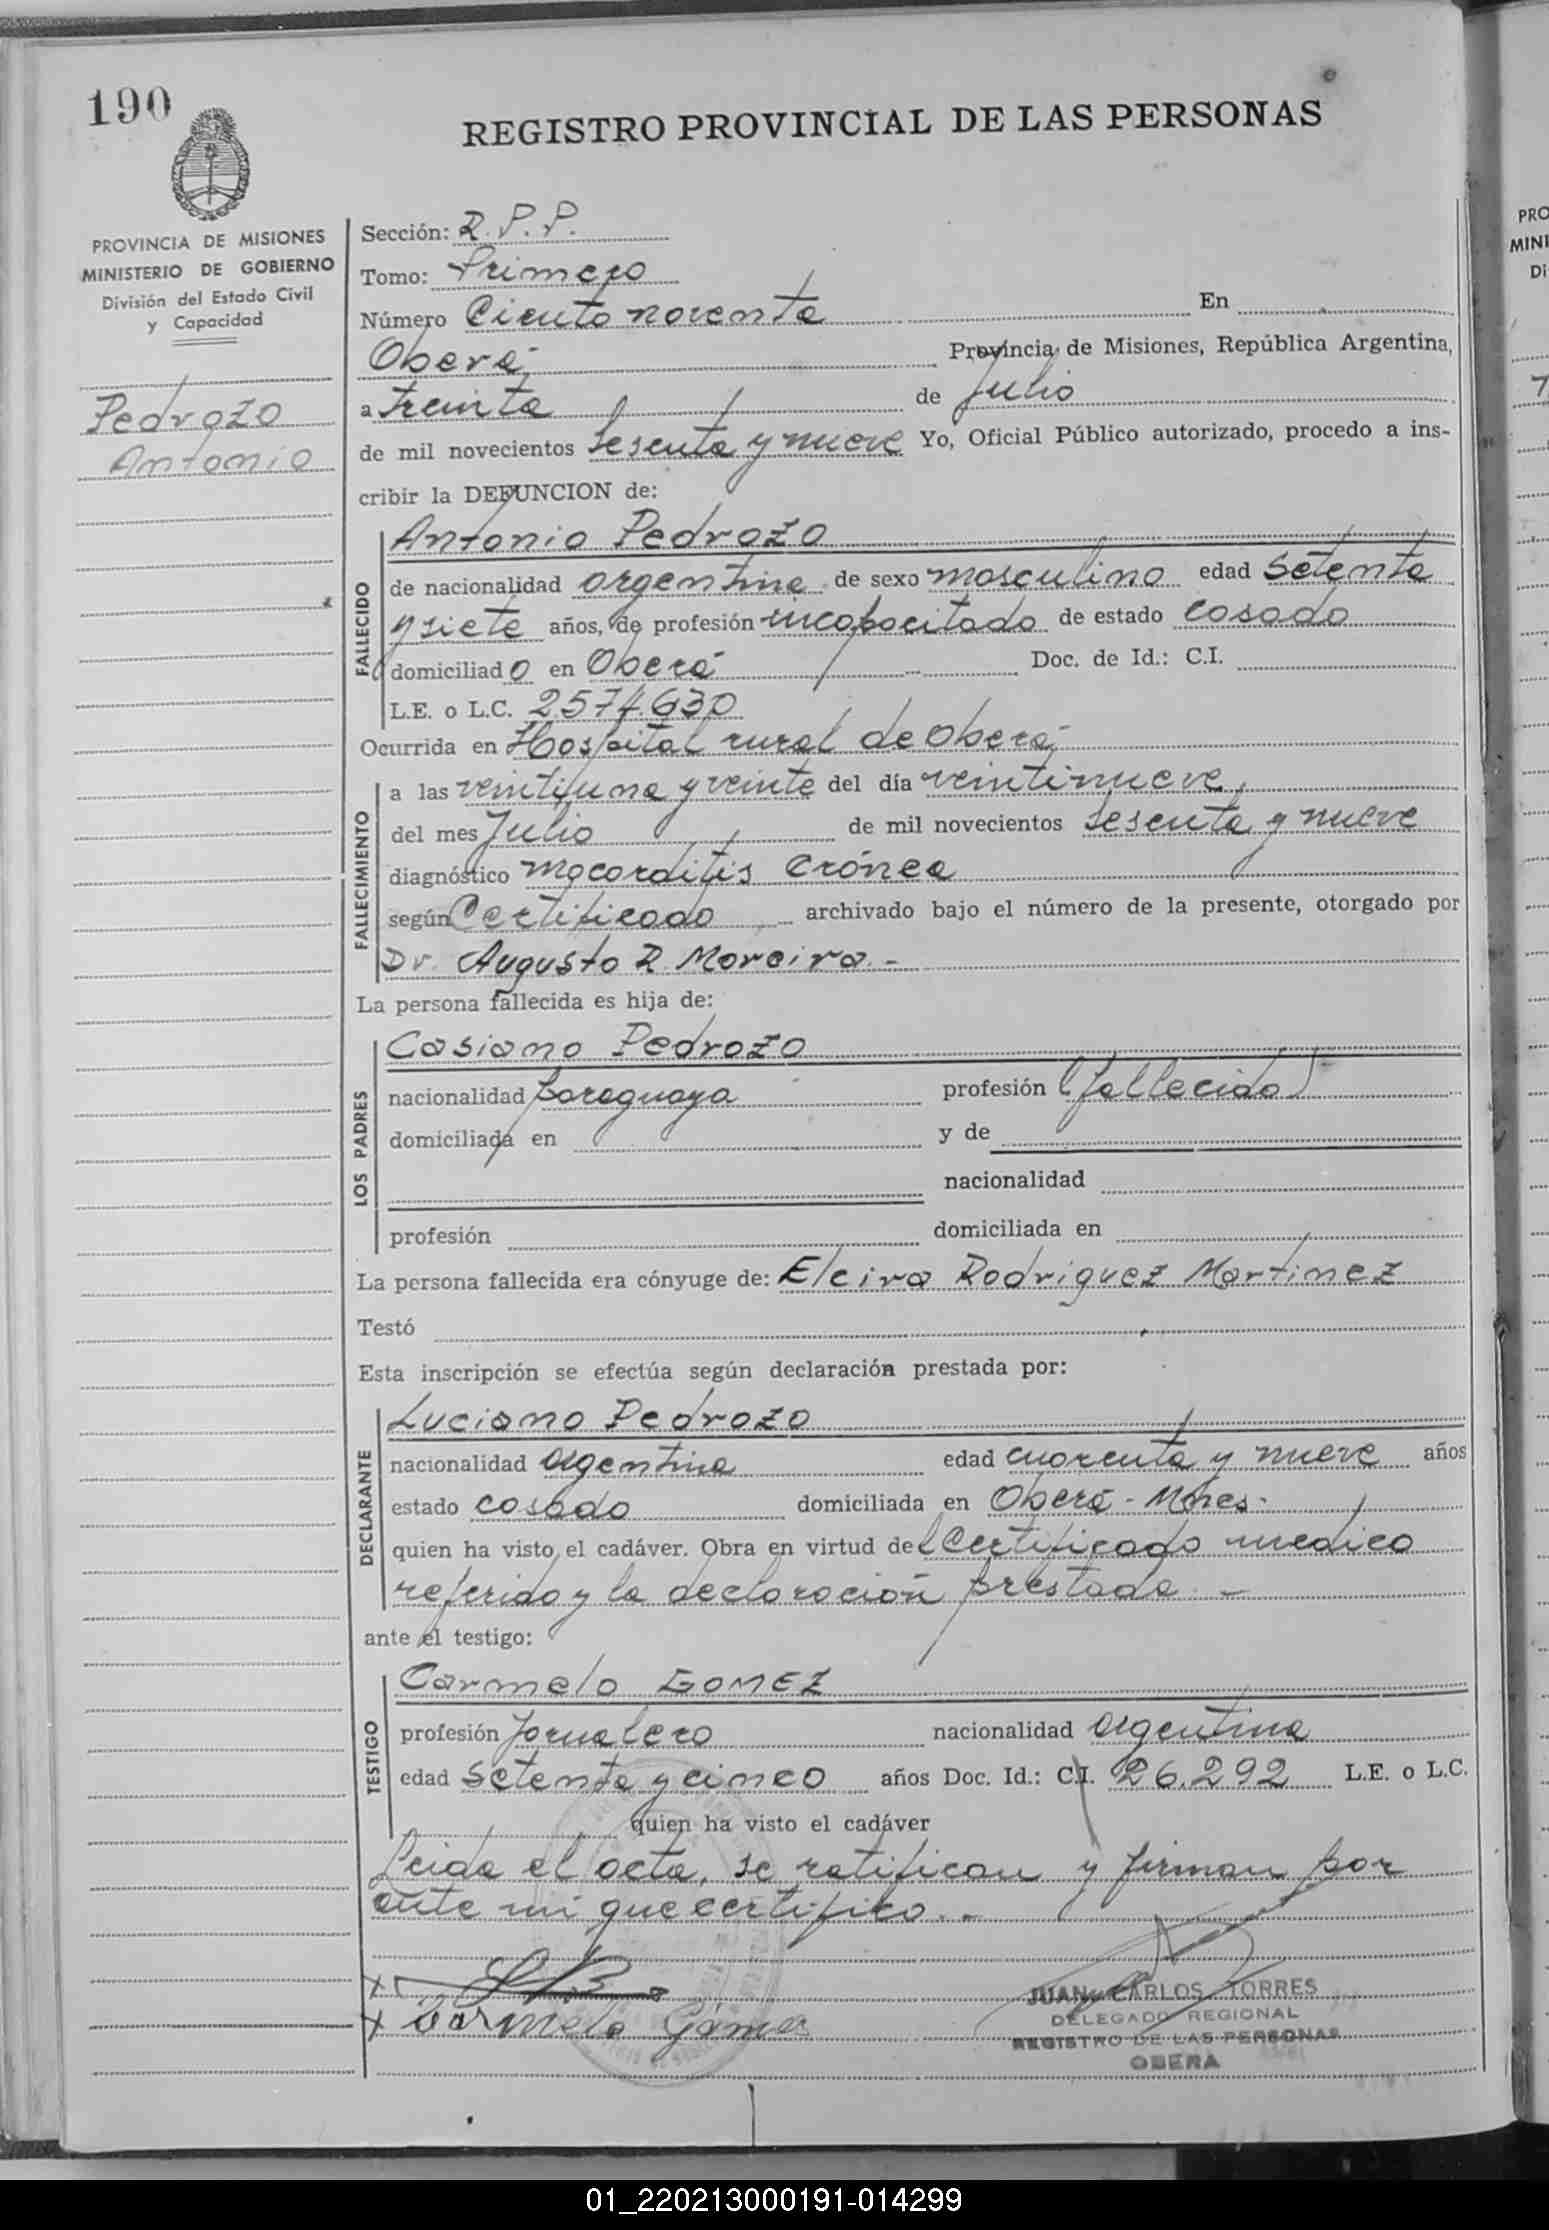 190
REGISTRO PROVINCIAL DE LAS PERSONAS
PROVINCIA DE MISIONES
MINISTERIO DE GOBIERNO
División del Estado Civil
y Capacidad
Pedrozo
Antonio
Sección: R. P. P.
Tomo: Primero
Número Ciento noventa En
Oberá Provincia de Misiones, República Argentina,
a treinta de Julio
de mil novecientos sesenta y nueve Yo, Oficial Público autorizado, procedo a ins-
cribir la DEFUNCION de:
FALLECIDO
Antonio Pedrozo
de nacionalidad argentina de sexo masculino edad setenta
y siete años, de profesión incapacitado de estado casado
domiciliado en Oberá Doc. de Id.: C.I.
L.E. o L.C. 2574.630
Ocurrida en Hospital rural de Oberá
FALLECIMIENTO
a las veintiuna y veinte del día veintinueve
del mes Julio de mil novecientos sesenta y nueve
diagnóstico mocarditis crónea
según Certificado archivado bajo el número de la presente, otorgado por
Dr. Augusto R. Moreira.-
La persona fallecida es hija de:
LOS PADRES
Casiano Pedrozo
nacionalidad paraguaya profesión (fallecido)
domiciliada en y de
nacionalidad
profesión domiciliada en
La persona fallecida era cónyuge de: Elcira Rodriguez Martinez
Testó
Esta inscripción se efectúa según declaración prestada por:
DECLARANTE
Luciano Pedrozo
nacionalidad argentina edad cuarenta y nueve años
estado casado domiciliada en Oberá - Mnes-
quien ha visto el cadáver. Obra en virtud del Certificado medico
referido y la declaración prestada.-
ante el testigo:
TESTIGO
Carmelo GOMEZ
profesión Jornalero nacionalidad argentina
edad setenta y cinco años Doc. Id.: C.I. 26.292 L.E. o L.C.
quien ha visto el cadáver
Leida el acta, se ratifican y firman por
ante mi que certifico.-
x
x Carmelo Gómes
JUAN CARLOS TORRES
DELEGADO REGIONAL
REGISTRO DE LAS PERSONAS
OBERA
01_220213000191-014299